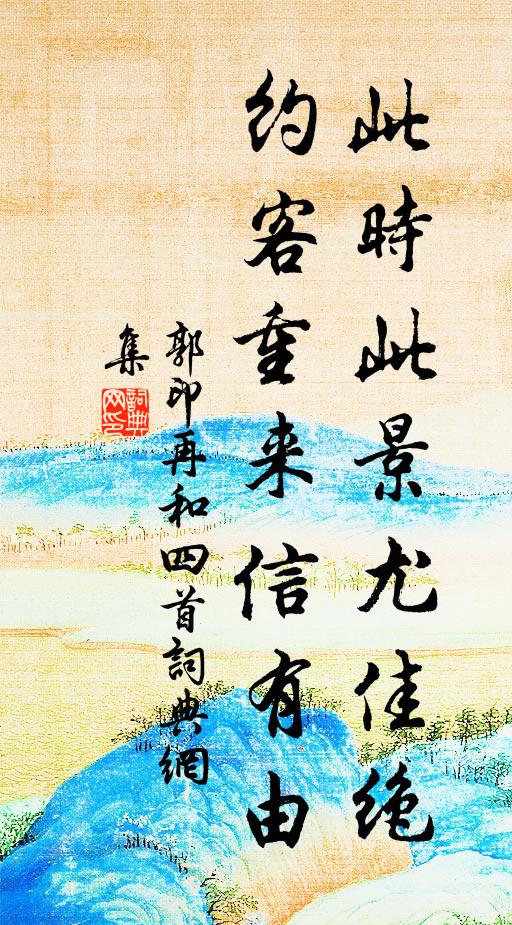 此時此景尤佳绝
约客重来信有由
郭印再和四首詞典網
集
詞典网